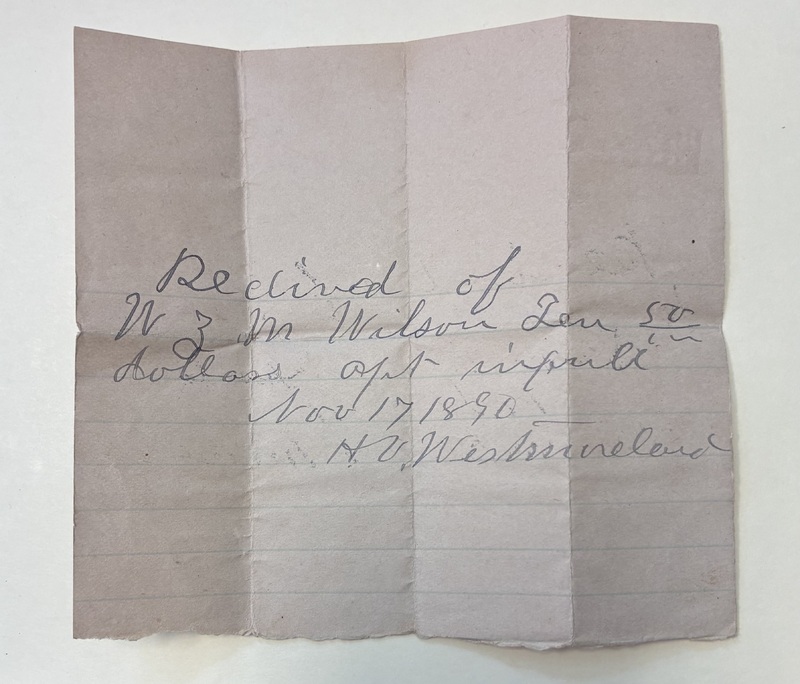 Recived of
W Z M Wilson Ten 50/100
dollars apt in full
Nov 17 1890
H. V. Westmoreland